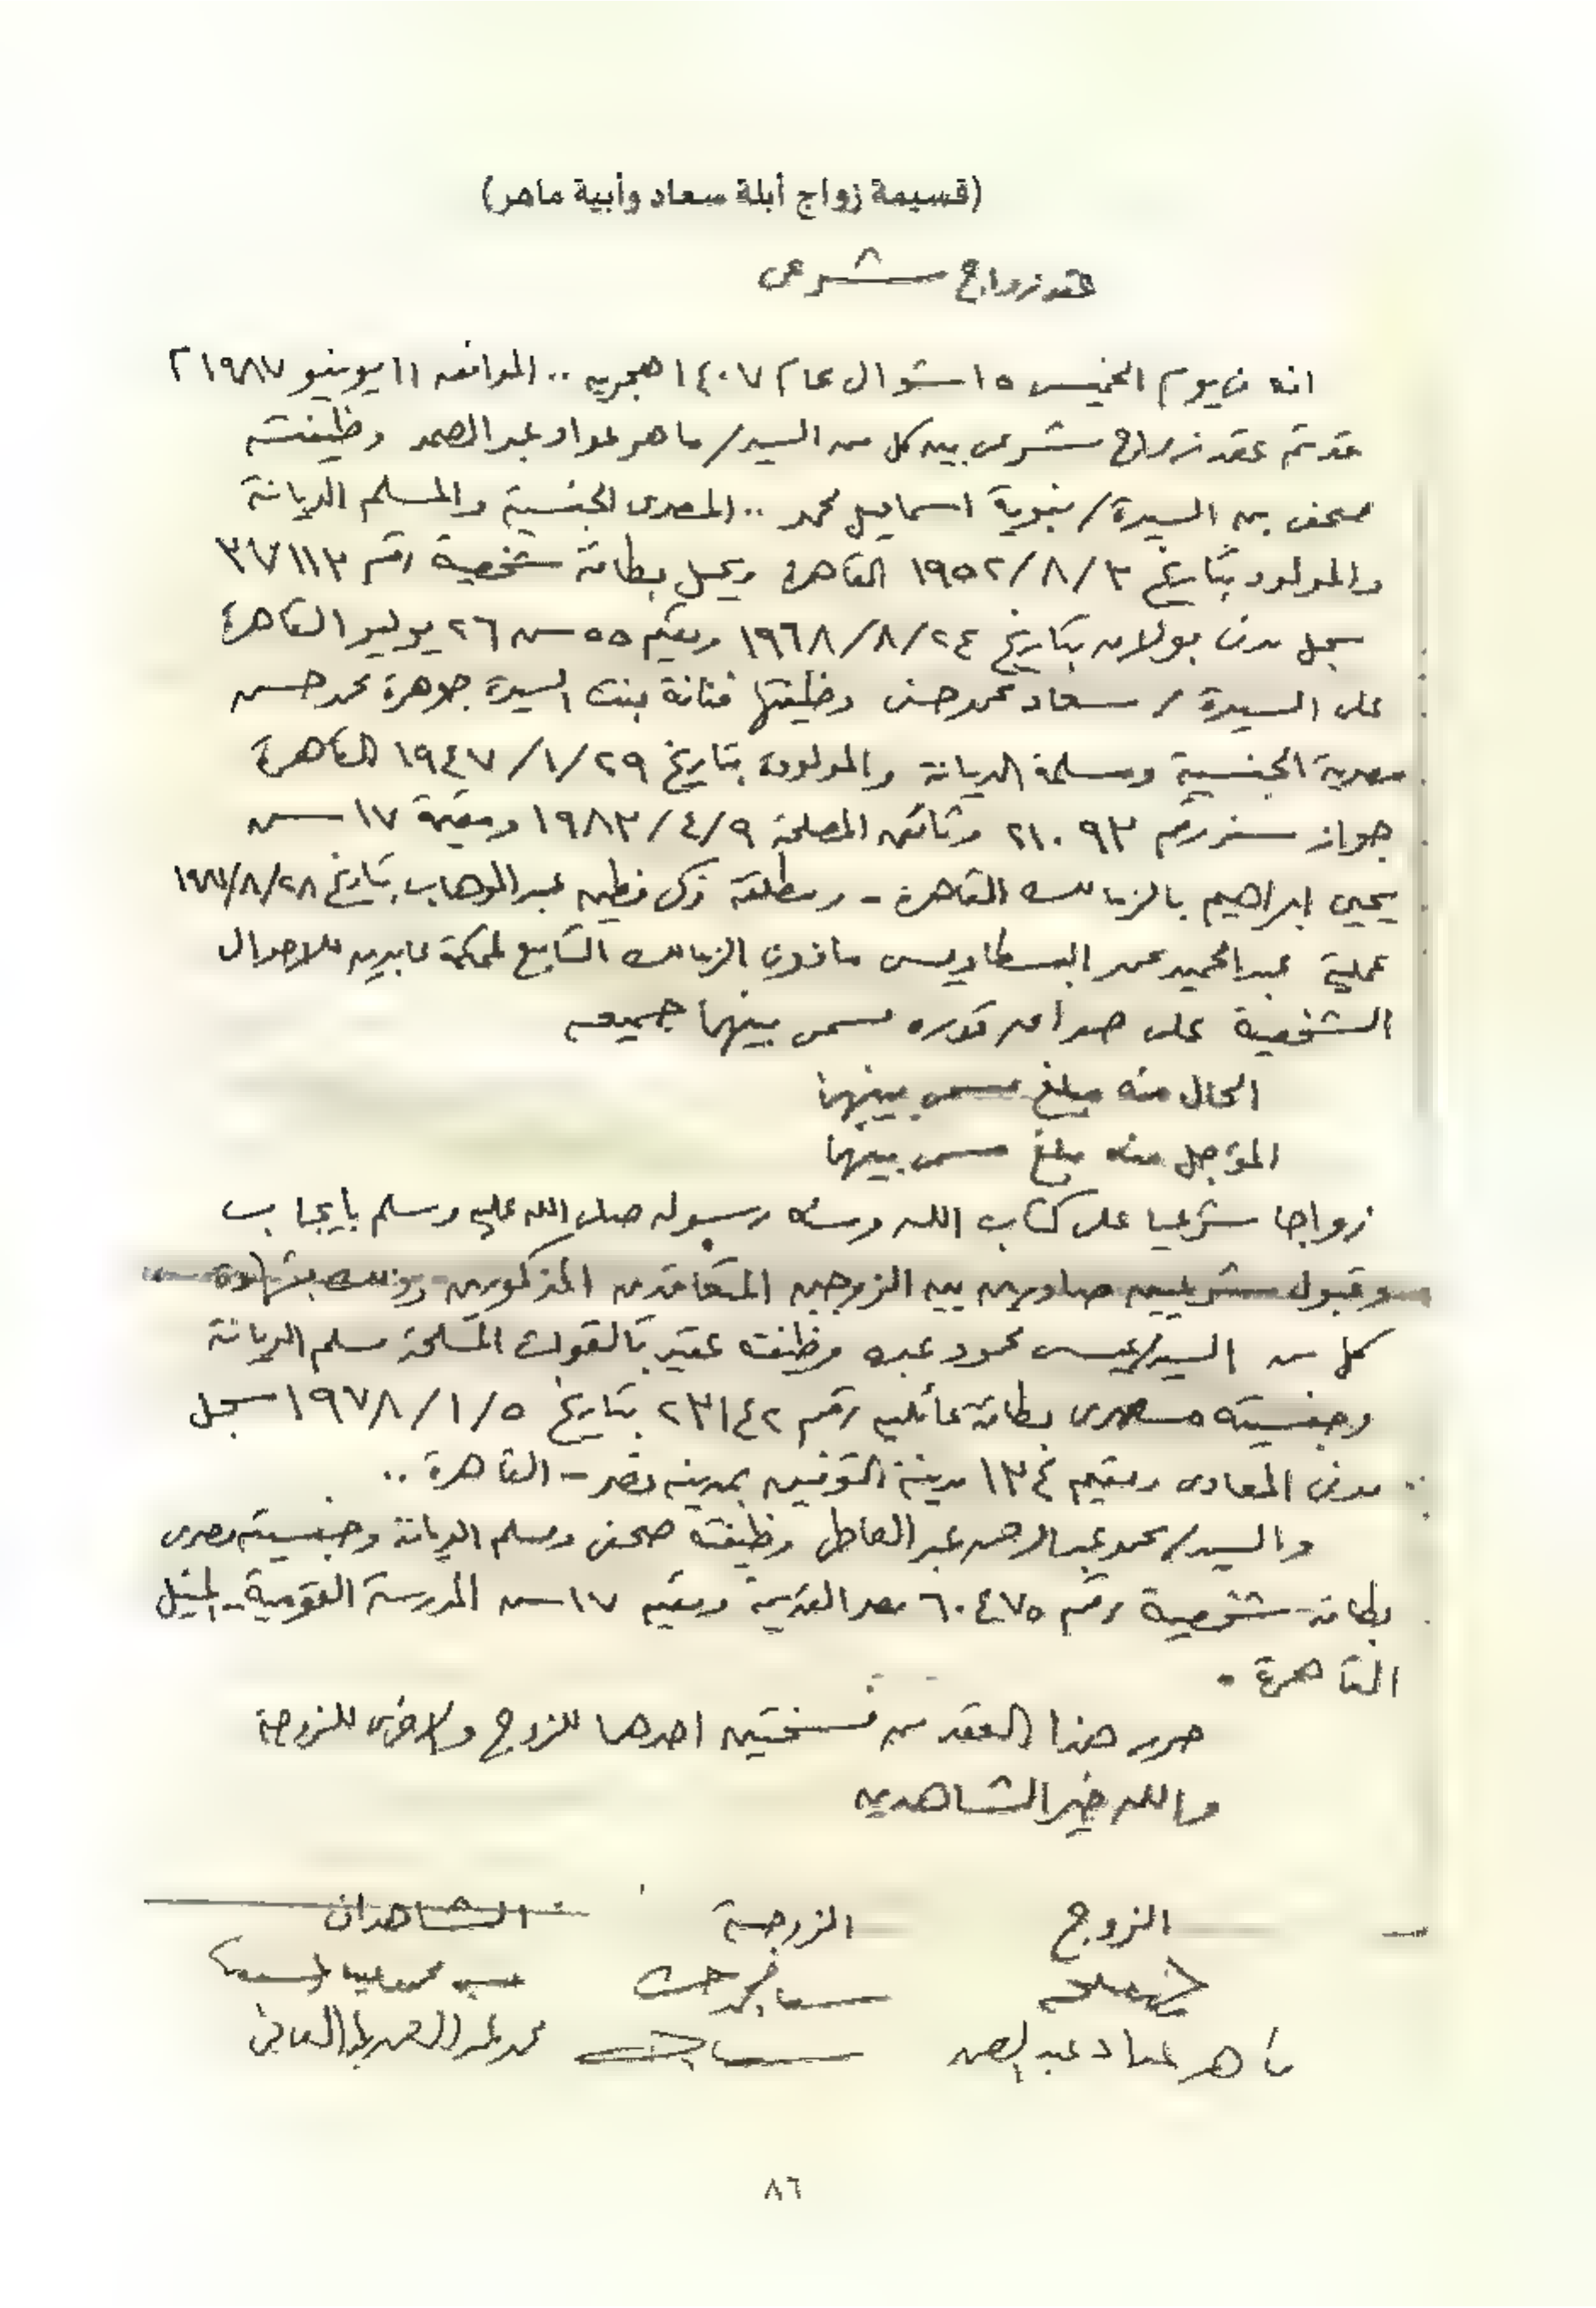 (قسيمة زواج أبلة سعاد وأبية ماهر)
عقد زواج شرعى
انه فى يوم الخميس ١٥ شوال عام ١٤٠٧ هجريه .. الموافق ١١ يونيو ١٩٨٧ م
قد تم عقد زواج شرعى بين كل من السيد / ماهر عواد عبد الصمد وظيفته
صحفى بن السيدة / نبوية اسماعيل محمد .. المصرى الجنسية والمسلم الديانة
والمولود بتاريخ ٣ / ٨ / ١٩٥٢ القاهرة ويحمل بطاقة شخصية رقم ٣٧١١٣
سجل مدنى بولاق بتاريخ ٢٤ / ٨ / ١٩٦٨ ويقيم ٥٥ ش ٢٦ يوليو القاهرة
على السيدة / سعاد محمد حسنى وظيفتها فنانة بنت السيدة جوهرة محمد حسن
مصرية الجنسية ومسلمة الديانة والمولودة بتاريخ ٢٩ / ١ / ١٩٤٧ القاهرة
جواز سفر رقم ٢١٠٩٣ وثائق المصلحة ٩ / ٤ / ١٩٨٣ ومقيمة ١٧ ش
يحيى ابراهيم بالزمالك القاهرة - ومطلقة زكى فطين عبد الوهاب بتاريخ ٢٨ / ٨ /
عملية عبد الحميد عمر البسطاويسى مأذون الزمالك التابع لمحكمة عابدين للاحوال
الشخصية على صداق قدره مسمى بينهما جميعه
الحال منه مبلغ مسمى بينهما
المؤجل منه مبلغ مسمى بينهما
زواجا شرعيا على كتاب الله وسنه رسوله صلى الله عليه وسلم بايجاب
وقبول شرعيين صادرين بين الزوجين المتعاقدين المذكورين وذلك بشهادة
كل من السيد / عيسى محمود عبده وظيفته عقيد بالقوات المسلحة مسلم الديانة
وجنسيته مصرى بطاقة عائليه رقم ٢٣١٤٢ بتاريخ ٥ / ١ / ١٩٧٨ سجل
مدنى المعادى ومقيم ١٣٤ مدينة التوفيق بمدينه نصر - القاهرة ..
والسيد / محمد عبد الرحمن عبد العاطى وظيفته صحفى ومسلم الديانة وجنسيته مصرى
بطاقة شخصية رقم ٦٠٤٧٥ مصر القديمة ومقيم ١٧ ش المدرسة القومية - المنيل
القاهرة .
حرر هذا العقد من نسختين احدهما للزوج والاخرى للزوجة
والله خير الشاهدين
الزوج الزوجة الشاهدان
ماهر عواد عبد الصمد
٨٦